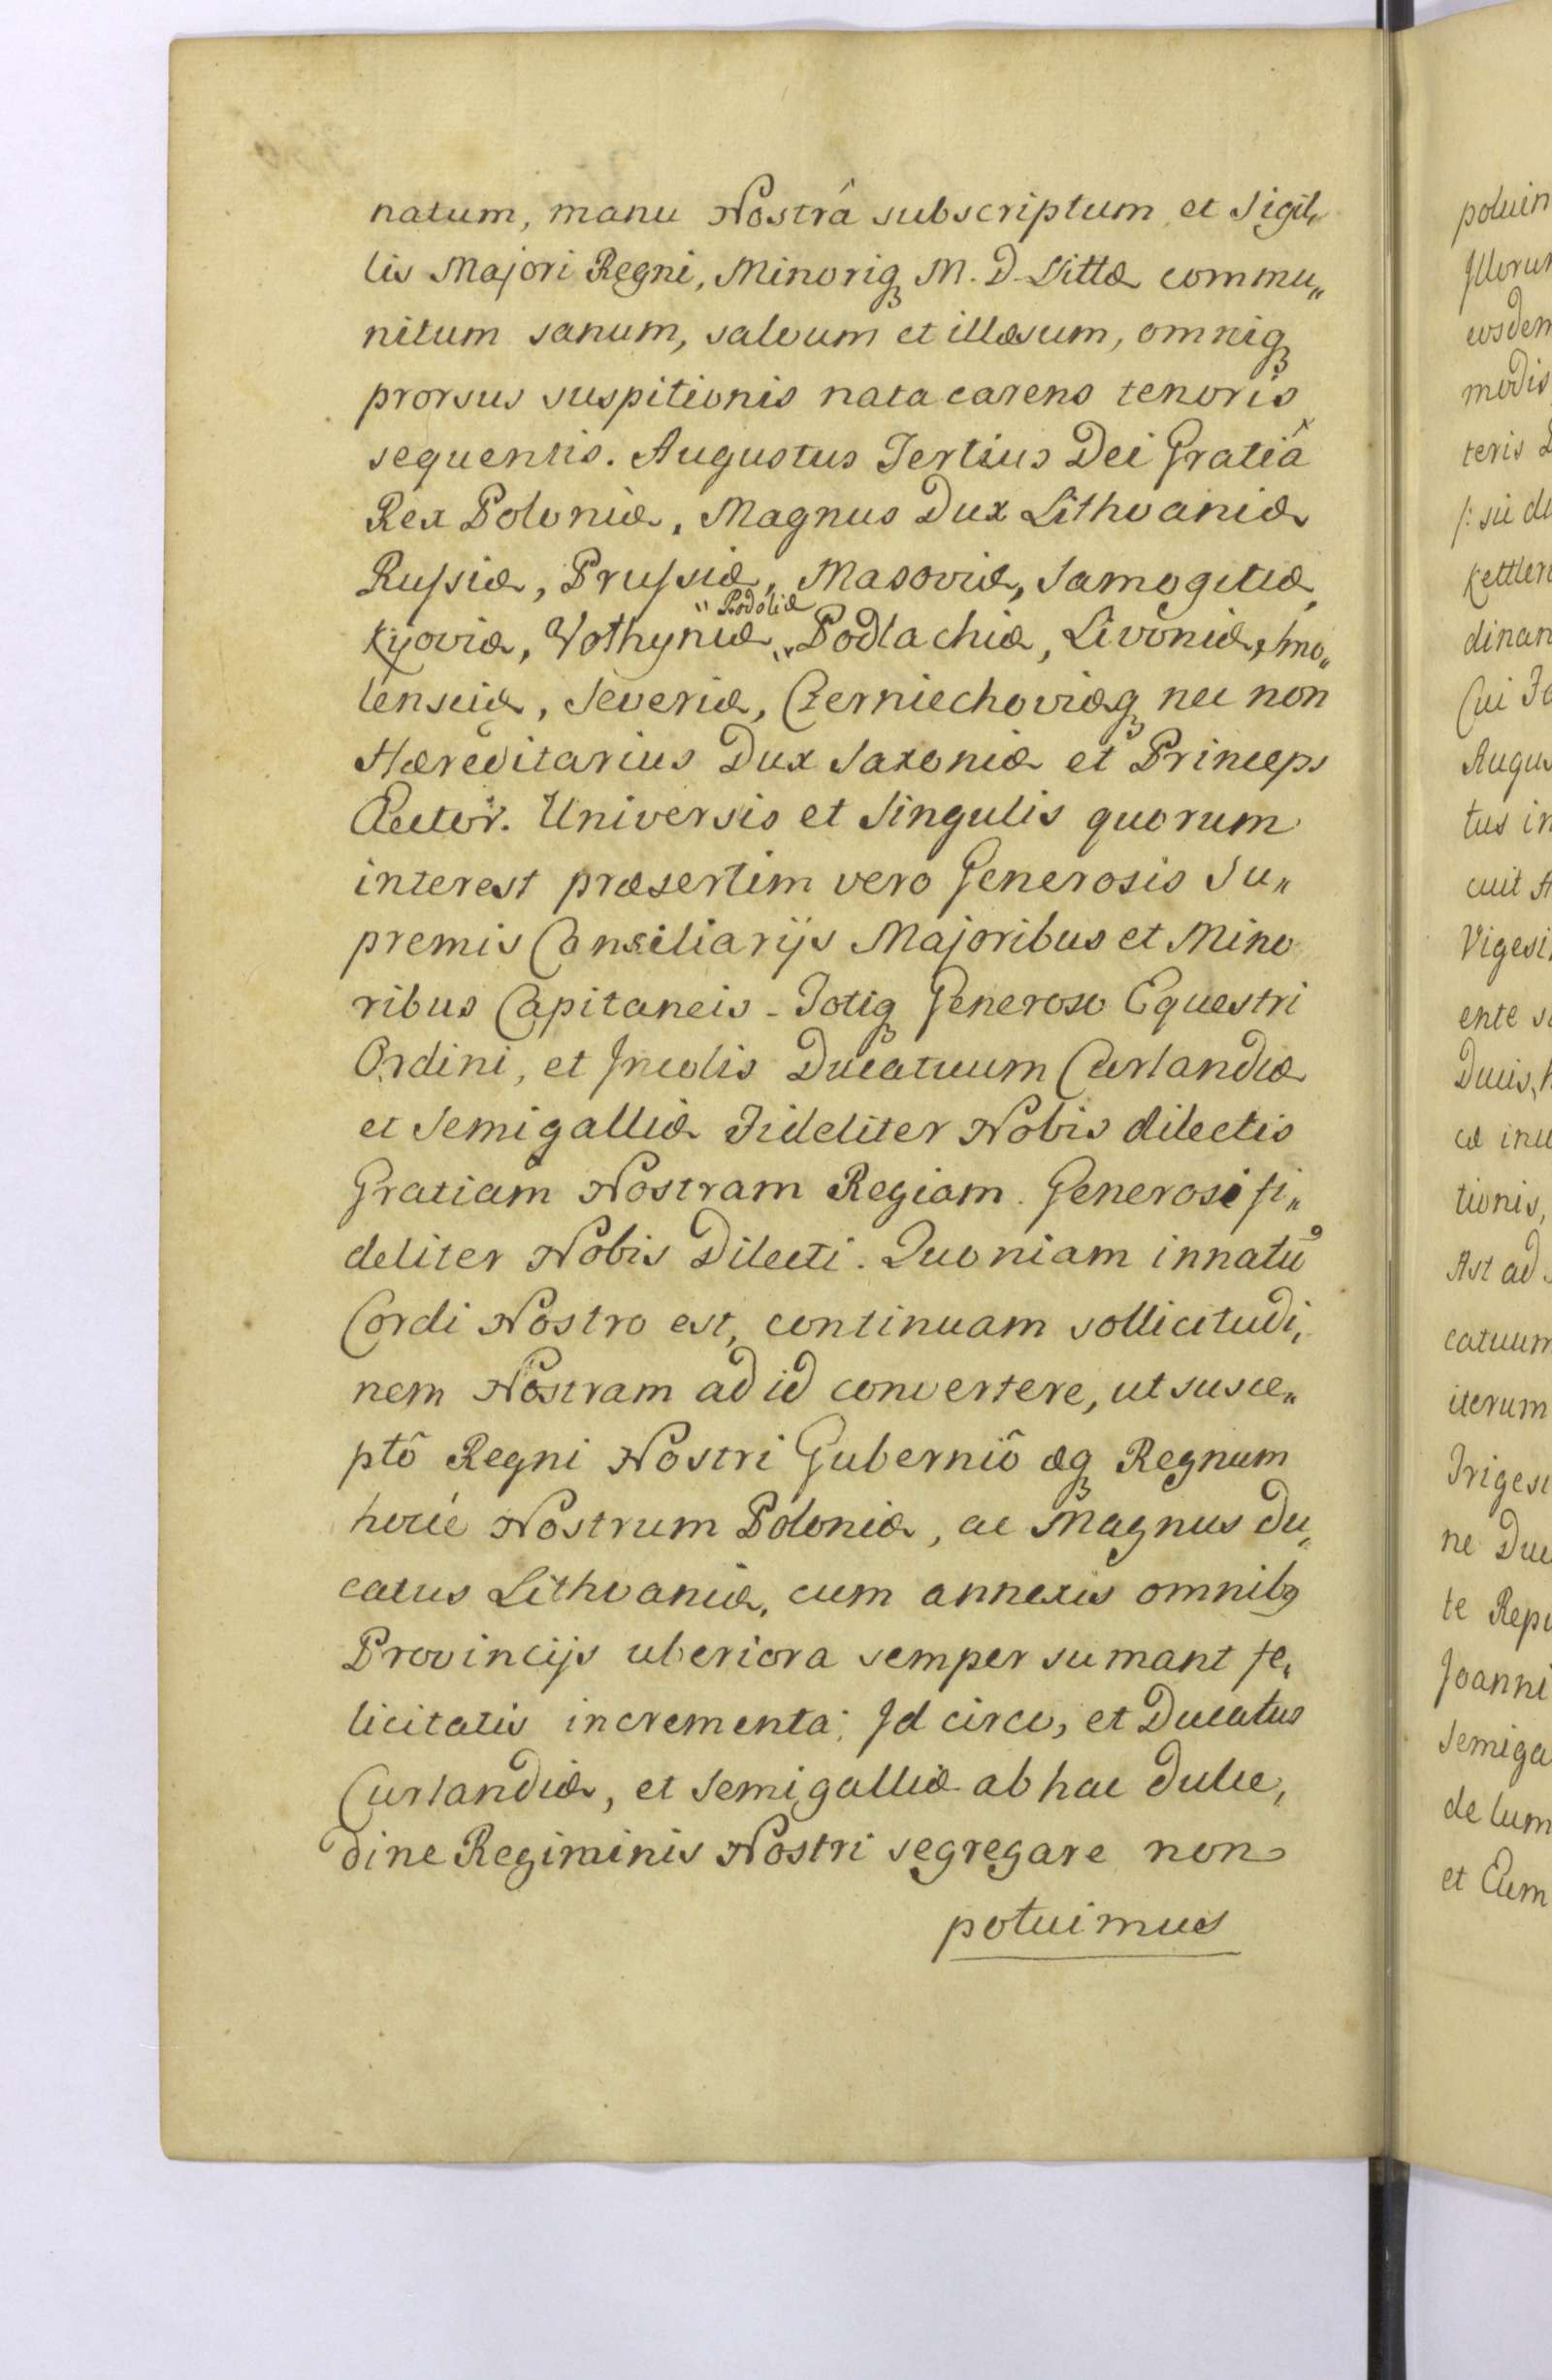 natum, manu Nostrâ subscriptum et Sigil„
lis Majori Regni, Minoriq₃ M. D. Littæ commu„
nitum sanum, salvum et illæsum, omniq₃
prorsus suspitionis nata carens tenoris
sequentis. Augustus Tertius Dei Gratiâ
Rex Poloniæ, Magnus Dux Lithvaniæ
Russiæ, Prussiæ, Masoviæ, Samogitiæ,
„ Podoliæ
Kijoviæ, Volhyniæ „ Podlachiæ, Livoniæ, Smo„
lensciæ, Severiæ, Czerniechoviæq₃ nec non
Hæreditarius Dux Saxoniæ et Princeps
Elector. Universis et Singulis quorum
interest præsertim vero Generosis Su„
premis Consiliarijs Majoribus et Mino
ribus Capitaneis - Totiq₃ Generoso Equestri
Ordini, et Incolis Ducatuum Curlandiæ
et Semigalliæ Fideliter Nobis dilectis
Gratiam Nostram Regiam. Generosi fi„
deliter Nobis Dilecti. Quoniam innatũ
Cordi Nostro est, continuam sollicitudi,
nem Nostram ad id convertere, ut susce„
ptô Regni Nostri Guberniô æq₃ Regnum
hocie Nostrum Poloniæ, ac Magnus Du„
catus Lithvaniæ, cum annexis omnibq
Provincijs uberiora semper sumant fe,
licitatis incrementa; Id circo, et Ducatus
Curlandiæ, et Semigalliæ ab hac dulce,
dine Regiminis Nostri segregare non
potuimus
potuim
Illorum
eosdem
modis
teris
/: sic du
Kettler
dinan
Cui
Augus
tus in
cuit
Vigesi
ente
Ducis,
cæ
tionis,
Ast ad
catuum
iterum
Triges
ne Duc
te Repu
Joanni
Semiga
de lum
et Eum